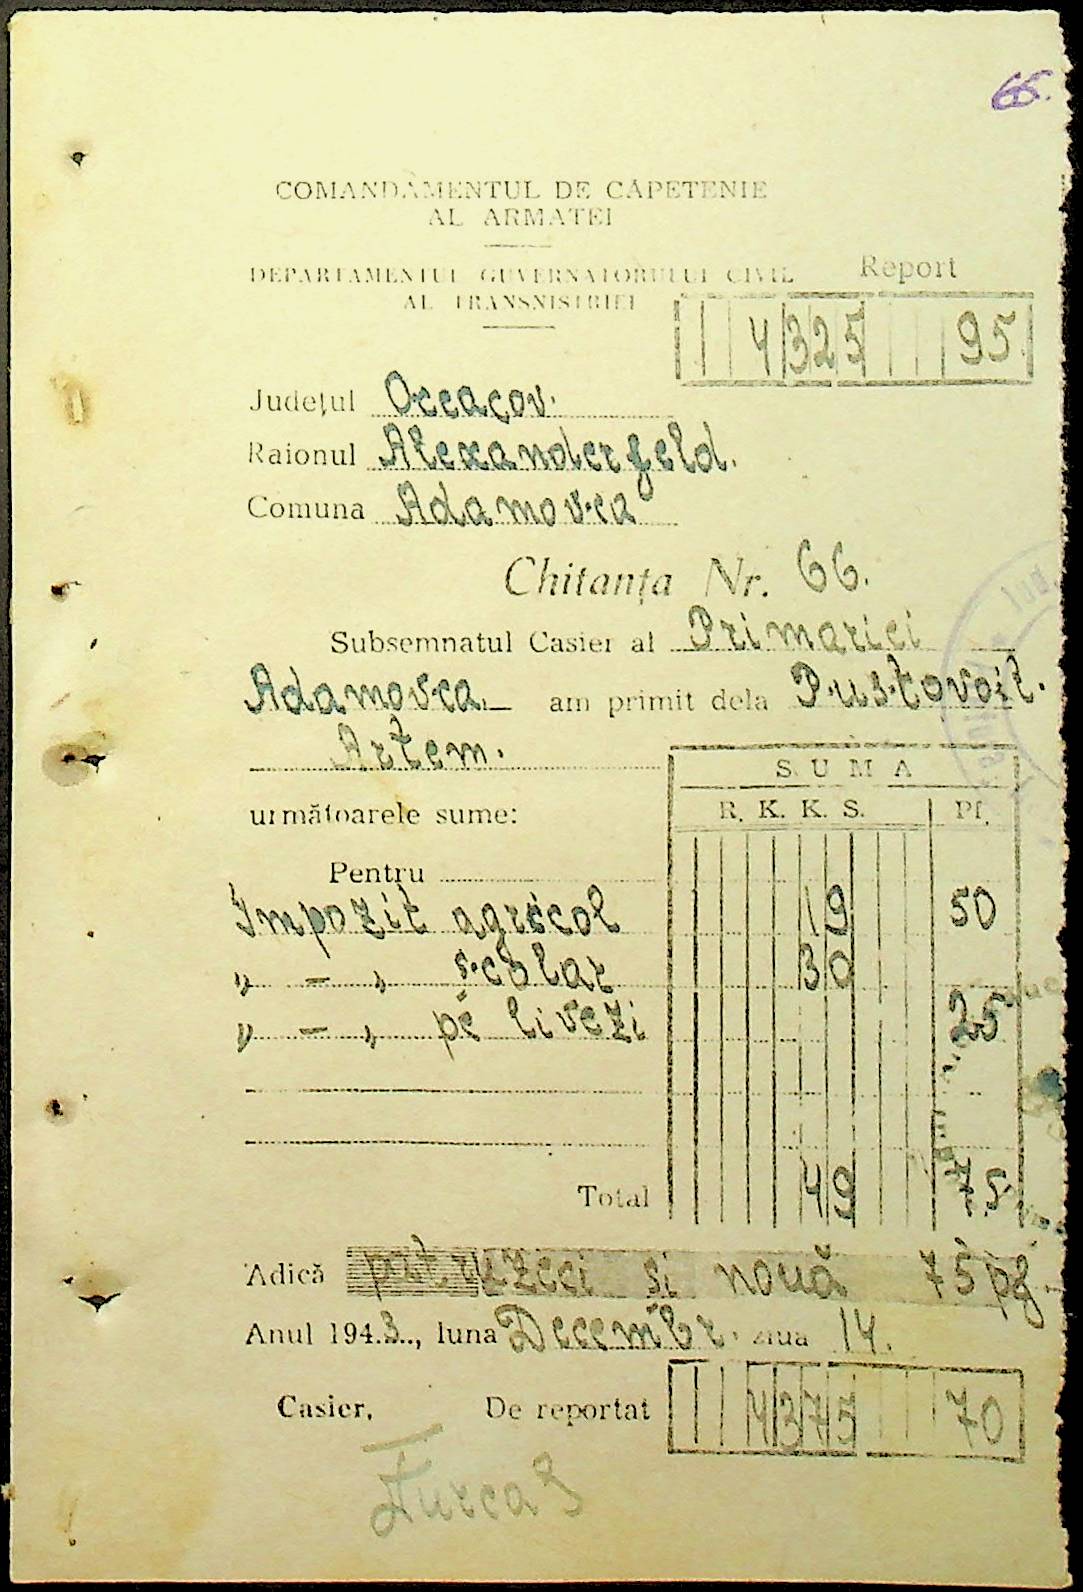 66.
COMANDAMENTUL DE CĂPETENIE
AL ARMATEI
DEPARTAMENTUL GUVERNATORULUI CIVIL
AL TRANSNISTRIEI
Report
4325 95
Județul Oceacov.
Raionul Alexanderfeld.
Comuna Adamovca
Chitanța Nr. 66.
Subsemnatul Casier al Primariei
Adamovca am primit dela Pustovoit.
Artem.
SUMA
următoarele sume: R. K. K. S. Pf.
Pentru
Impozit agricol 19 50
„ — „ scolar 30
„ — „ pe livezi 25
Total 49 75
Adică patruzeci si nouă 75 pf
Anul 1943, luna Decembr. ziua 14.
Casier, De reportat 4375 70